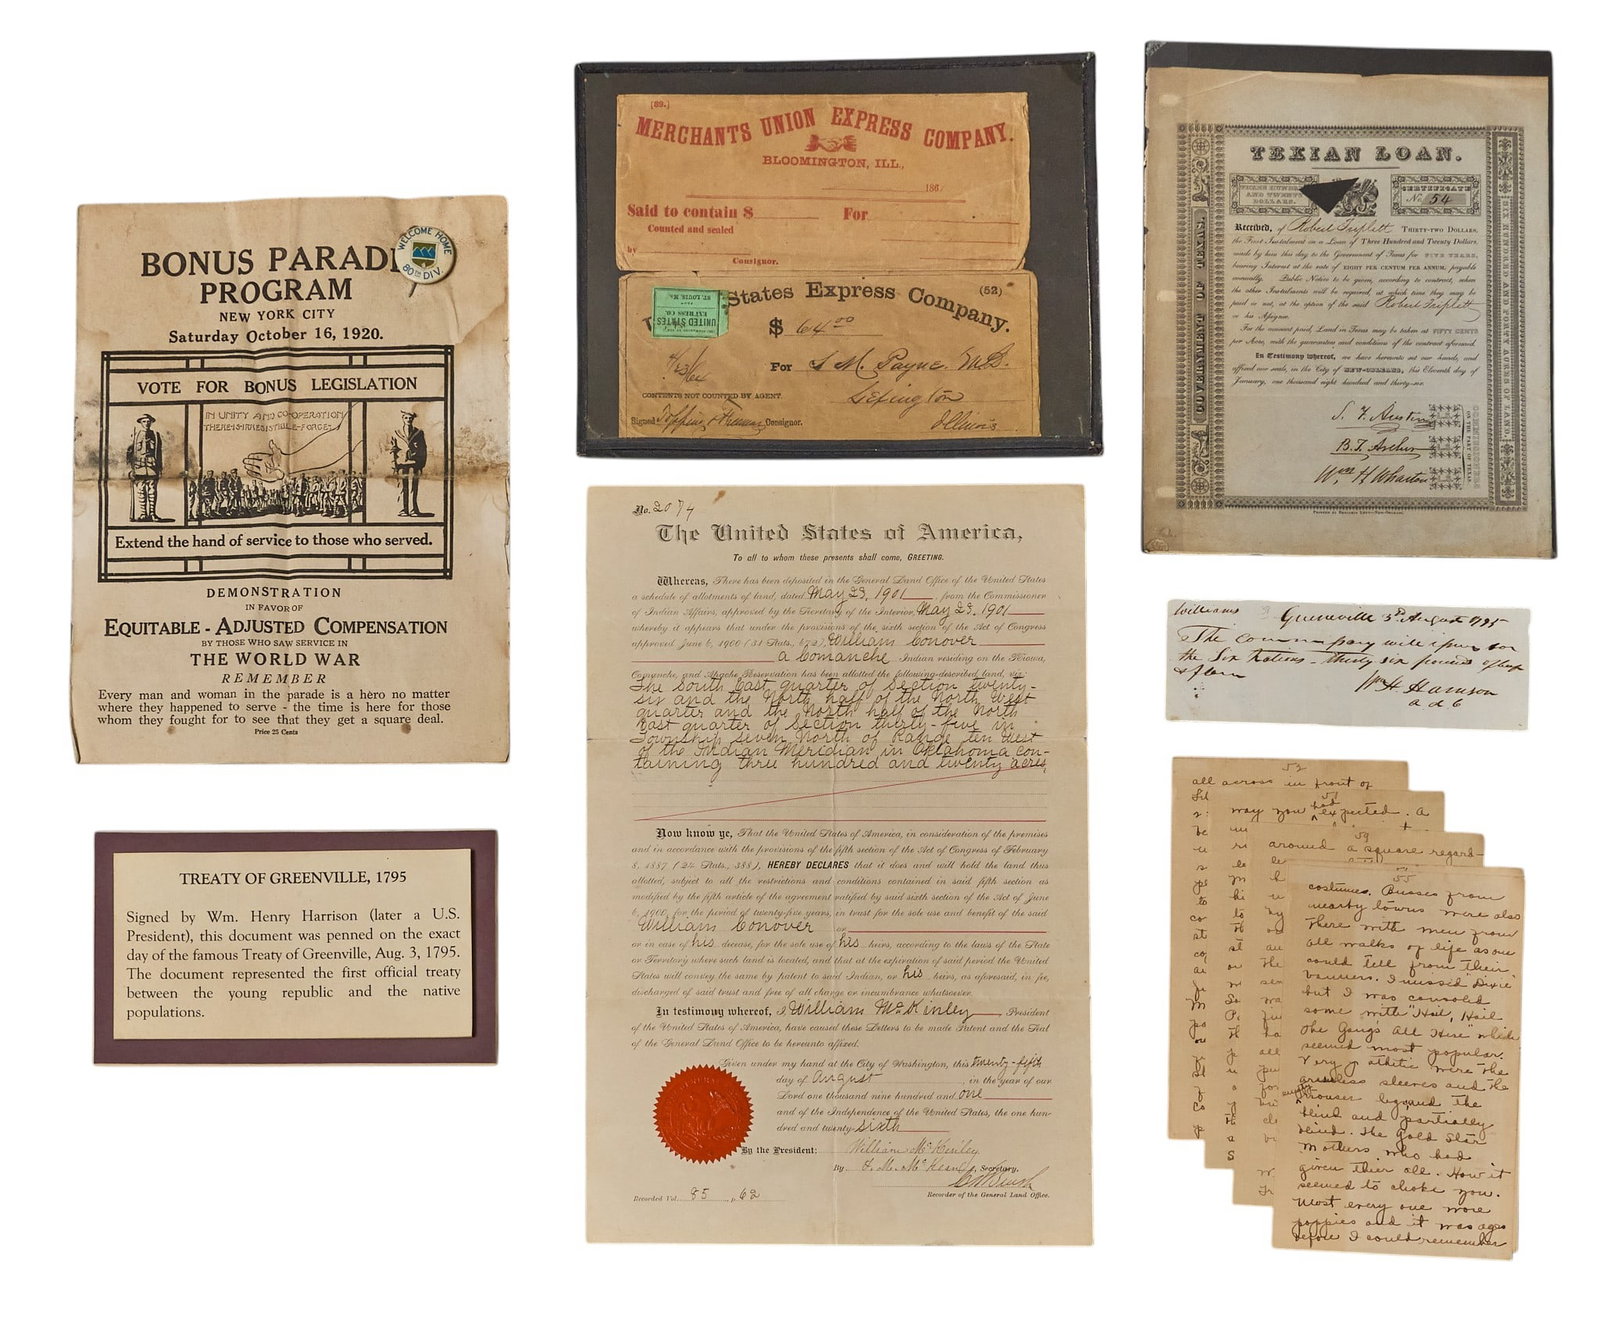 BONUS PARADE
PROGRAM
NEW YORK CITY
Saturday October 16, 1920.
WELCOME HOME
80TH DIV.
VOTE FOR BONUS LEGISLATION
IN UNITY AND CO-OPERATION
THERE IS IRRESISTIBLE FORCE
Extend the hand of service to those who served.
DEMONSTRATION
IN FAVOR OF
EQUITABLE - ADJUSTED COMPENSATION
BY THOSE WHO SAW SERVICE IN
THE WORLD WAR
REMEMBER
Every man and woman in the parade is a hero no matter
where they happened to serve - the time is here for those
whom they fought for to see that they get a square deal.
Price 25 Cents
TREATY OF GREENVILLE, 1795
Signed by Wm. Henry Harrison (later a U.S.
President), this document was penned on the exact
day of the famous Treaty of Greenville, Aug. 3, 1795.
The document represented the first official treaty
between the young republic and the native
populations.
(89.)
MERCHANTS UNION EXPRESS COMPANY.
BLOOMINGTON, ILL.,
186
Said to contain $ For
Counted and sealed
by
Consignor.
States Express Company.
(52)
UNITED STATES
EXPRESS CO.
ST. LOUIS, Mo.
$ 64 00
For S. M. Payne
CONTENTS NOT COUNTED BY AGENT
Lexington
Signed Consignor.
Illinois
No. 2074
The United States of America,
To all to whom these presents shall come, GREETING.
Whereas, There has been deposited in the General Land Office of the United States
a schedule of allotments of land, dated May 23, 1901 from the Commissioner
of Indian Affairs, approved by the Secretary of the Interior, May 23, 1901
whereby it appears that under the provisions of the sixth section of the Act of Congress
approved June 6, 1900 (31 Stats., 672), William Conover
a Comanche Indian residing on the Kiowa,
Comanche and Apache Reservation has been allotted the following-described land, viz:
The South East quarter of Section twenty-
six and the North half of the North West
quarter and the North half of the North
East quarter of Section thirty-five in
Township seven North of Range ten West
of the Indian Meridian in Oklahoma con-
taining three hundred and twenty acres,
Now know ye, That the United States of America, in consideration of the premises
and in accordance with the provisions of the fifth section of the Act of Congress of February
8, 1887 (24 Stats., 388), HEREBY DECLARES that it does and will hold the land thus
allotted, subject to all the restrictions and conditions contained in said fifth section as
modified by the fifth article of the agreement ratified by said sixth section of the Act of June
6, 1900, for the period of twenty-five years, in trust for the sole use and benefit of the said
William Conover or
or in case of his decease, for the sole use of his heirs, according to the laws of the State
or Territory where such land is located, and that at the expiration of said period the United
States will convey the same by patent to said Indian, or his heirs, as aforesaid, in fee,
discharged of said trust and free of all charge or incumbrance whatsoever.
In testimony whereof, I William McKinley, President
of the United States of America, have caused these Letters to be made Patent and the Seal
of the General Land Office to be hereunto affixed.
Given under my hand at the City of Washington, this twenty-fifth
day of August in the year of our
Lord one thousand nine hundred and one
and of the Independence of the United States, the one hun-
dred and twenty-sixth
By the President: William McKinley
By F. M. McKean, Secretary.
Recorder of the General Land Office.
Recorded Vol. 85 p. 62
TEXIAN LOAN.
THREE HUNDRED
AND TWENTY
DOLLARS.
CERTIFICATE
No. 54
GOVERNMENT OF TEXAS
SIX HUNDRED AND FORTY ACRES OF LAND
Received, of Robert Triplett THIRTY-TWO DOLLARS,
the First Instalment in a Loan of Three Hundred and Twenty Dollars,
made by him this day to the Government of Texas for FIVE YEARS,
bearing Interest at the rate of EIGHT PER CENTUM PER ANNUM, payable
annually. Public Notice to be given, according to contract, when
the other Instalments will be required, at which time they may be
paid or not, at the option of the said Robert Triplett
or his Assignee.
For the amount paid, Land in Texas may be taken at FIFTY CENTS
per Acre, with the guaranties and conditions of the contract aforesaid.
In Testimony whereof, we have hereunto set our hands, and
affixed our seals, in the City of NEW-ORLEANS, this Eleventh day of
January, one thousand eight hundred and thirty-six.
S. F. Austin
B. T. Archer
Wm. H. Wharton
COMMISSIONERS
ON THE PART OF TEXAS
Williams
Greenville 3d August 1795
The commissary will issue for
the Six Nations - thirty six pounds of beef
& flour
Wm H. Harrison
a d C
52
all across in front of
51
way you had expected. A
59
around a square regard-
55
costumes. Busses from
nearby towns were also
there with men from
all walks of life as one
could tell from their
banners. I missed "Dixie"
but I was consoled
some with "Hail, Hail
the Gang's All Here" which
seemed most popular.
Very pathetic were the
armless sleeves and the
empty trouser legs and the
blind and partially
blind. The Gold Star
Mothers who had
given their all. How it
seemed to choke you.
Most every one wore
poppies and it was ages
before I could remember